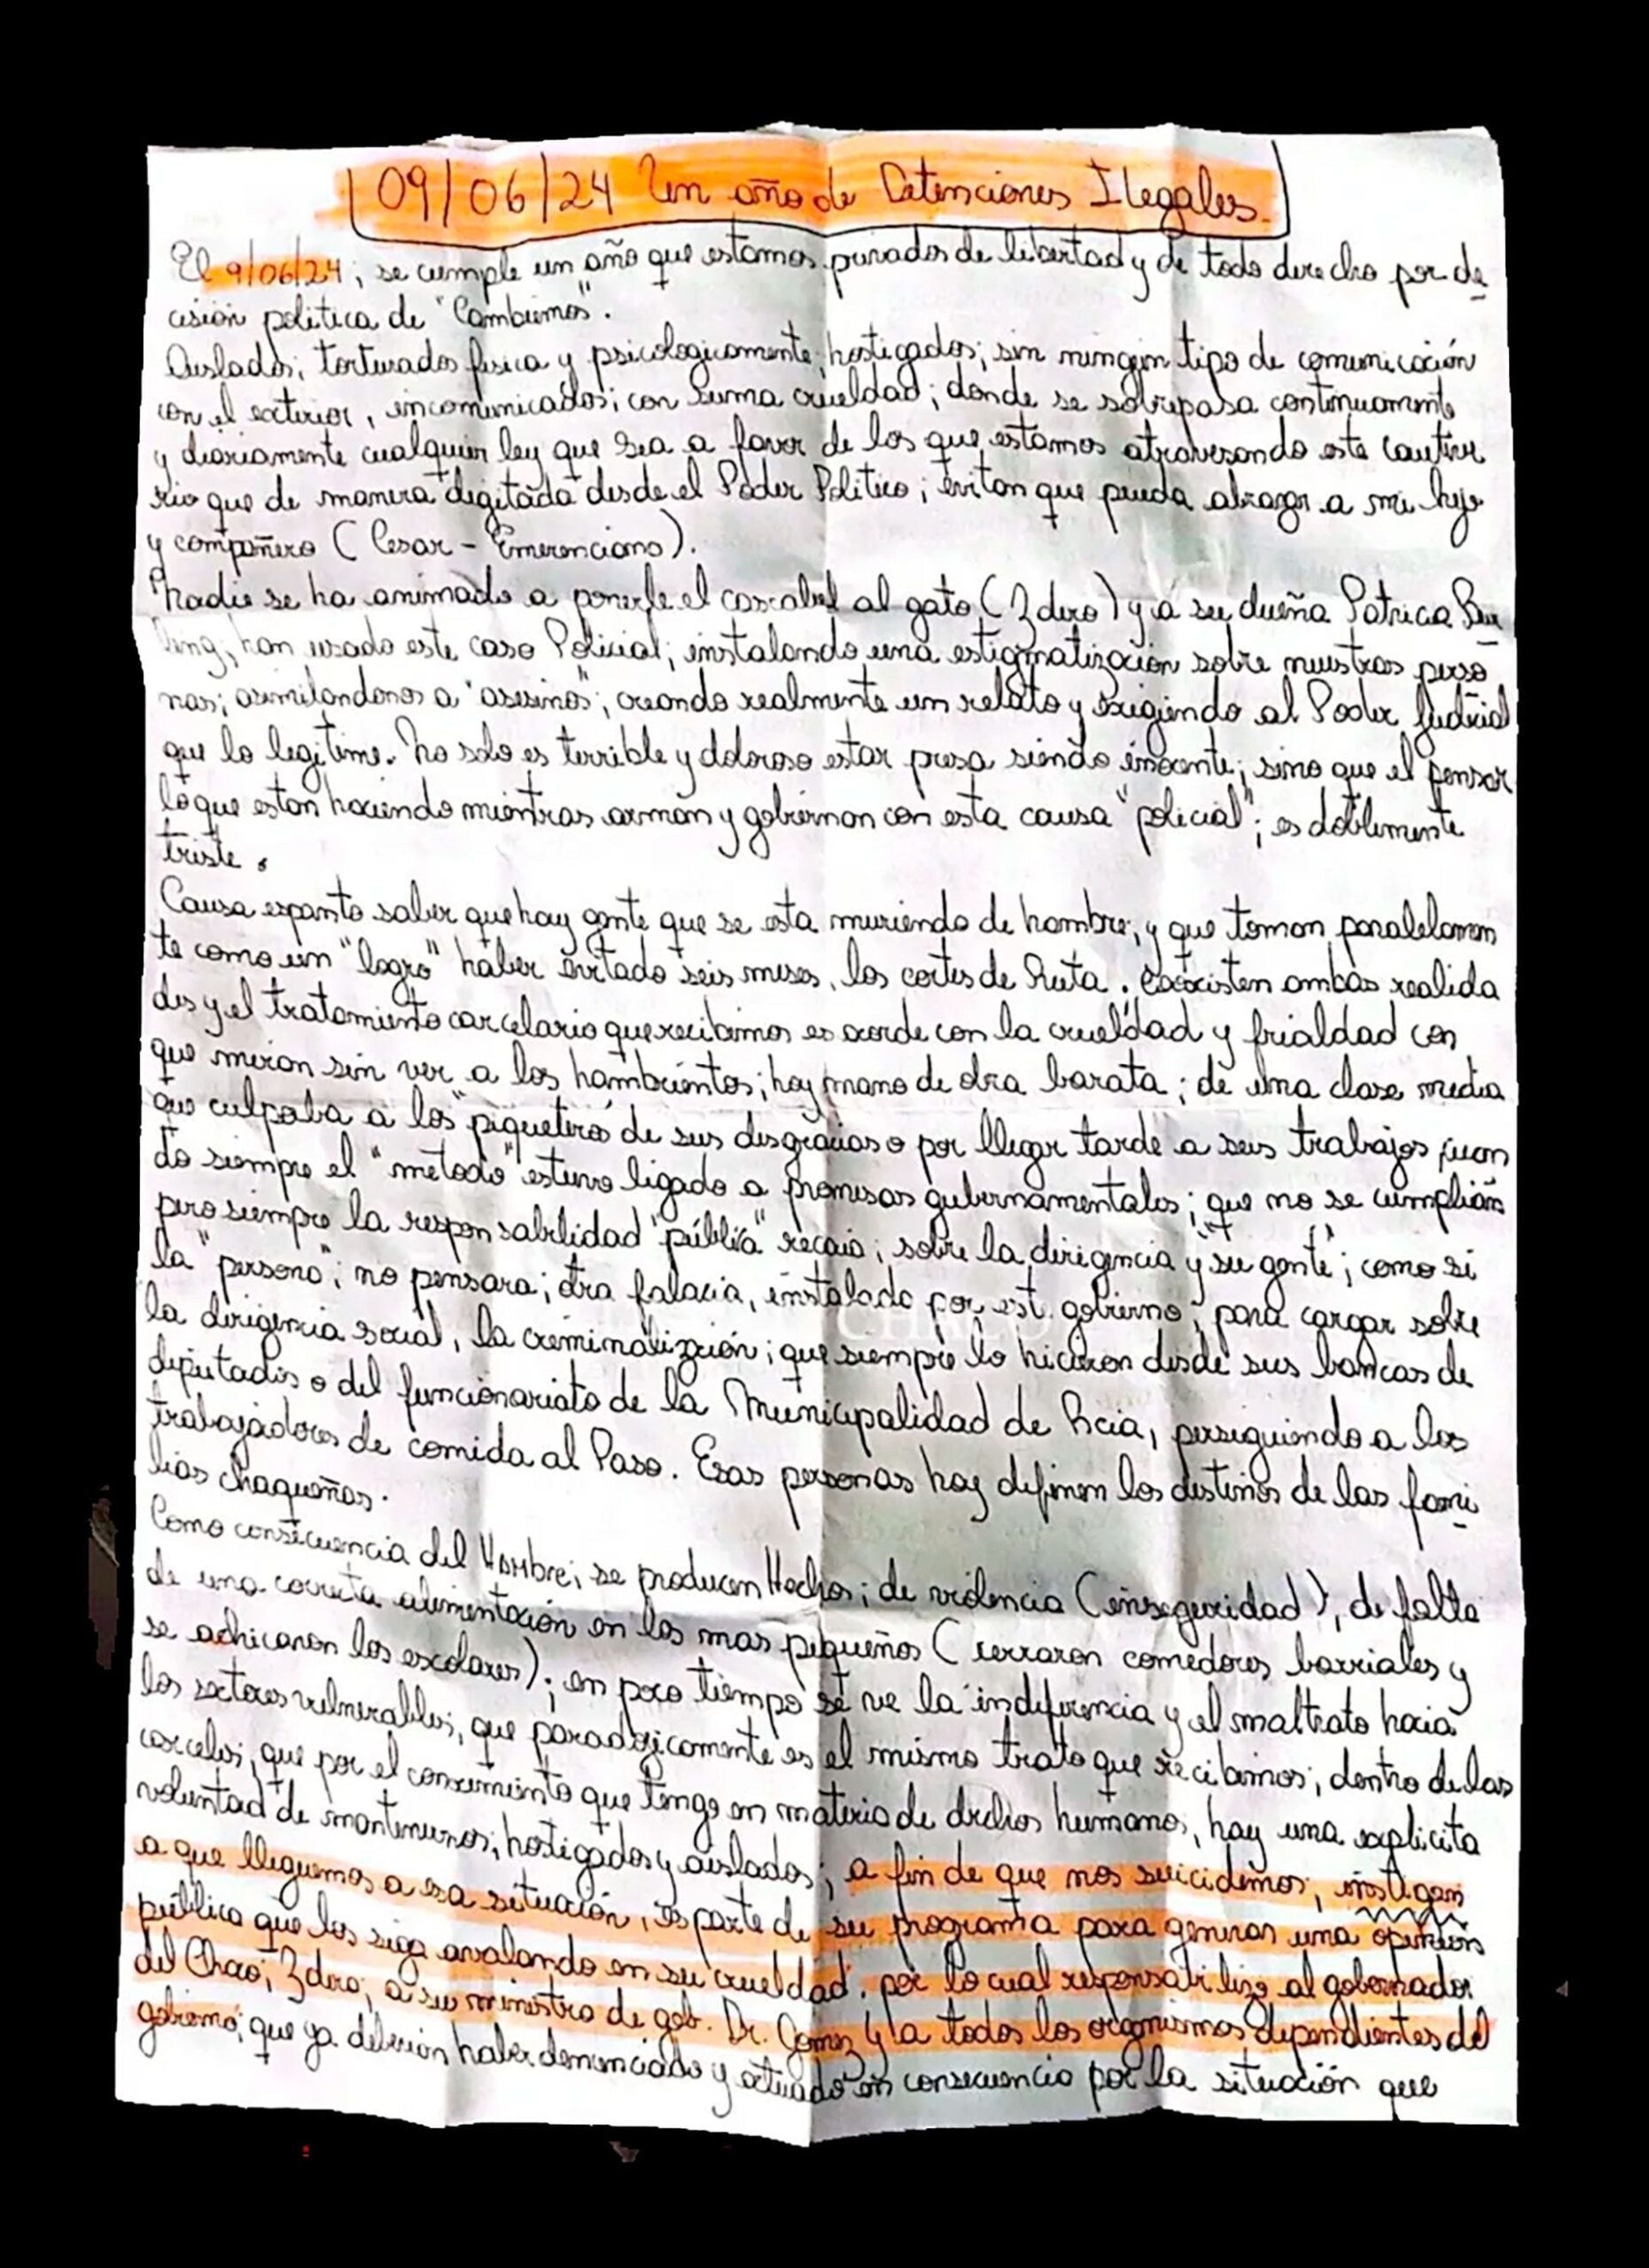 09/06/24 Un año de Detenciones Ilegales.
El 9/06/24; se cumple un año que estamos privados de libertad y de todo derecho por de
cisión politica de "Cambiemos".
Aislados; torturados fisica y psicologicamente; hostigados; sin ningún tipo de comunicación
con el exterior, incomunicados; con suma crueldad; donde se sobrepasa continuamente
y diariamente cualquier ley que sea a favor de los que estamos atravesando este cautive
rio que de manera digitada desde el Poder Politico; evitan que pueda abrazar a mi hijo
y compañero (Cesar - Emerenciano).
Nadie se ha animado a ponerle el cascabel al gato (Zdero) y a su dueña Patricia Bu
llring, han usado este caso Policial; instalando una estigmatización sobre nuestras perso
nas; asimilandonos a "asesinos"; creando realmente un relato y exigiendo al Poder Judicial
que lo legitime. No solo es terrible y doloroso estar presa siendo inocente; sino que el pensar
lo que estan haciendo mientras arman y gobiernan con esta causa "policial"; es doblemente
triste.
Causa espanto saber que hay gente que se esta muriendo de hambre; y que toman paralelamen
te como un "logro" haber evitado seis meses, los cortes de Ruta. Coexisten ambas realida
des y el tratamiento carcelario que recibimos es acorde con la crueldad y frialdad con
que miran sin ver a los hambrientos; hoy mano de obra barata; de una clase media
que culpaba a los "piqueteros de sus desgracias o por llegar tarde a sus trabajos cuan
do siempre el "metodo" estuvo ligado a promesas gubernamentales; que no se cumplian
pero siempre la responsabilidad "pública" recaia; sobre la dirigencia y "su gente"; como si
la "persona"; no pensara; otra falacia, instalado por est. gobierno; para cargar sobre
la dirigencia social, la criminalización; que siempre lo hicieron desde sus bancas de
diputados o del funcionariato de la Municipalidad de Rcia, persiguiendo a los
trabajadores de comida al Paso. Esas personas hoy definen los destinos de las fami
lias chaqueñas.
Como consecuencia del Hambre; se producen Hechos; de violencia (inseguridad), de falta
de una correcta alimentación en los mas pequeños (cerraron comedores barriales y
se achicaron los escolares); en poco tiempo se ve la indiferencia y el maltrato hacia
los sectores vulnerables; que paradojicamente es el mismo trato que recibimos; dentro de las
carceles; que por el conocimiento que tengo en materia de drechos humanos, hay una explicita
voluntad de mantenernos; hostigados y aislados; a fin de que nos suicidemos; instigan
a que lleguemos a esa situación, es parte de su programa para generar una opinión
pública que los siga avalando en su crueldad. por lo cual responsabilizo al gobernador
del Chaco; Zdero; a su ministro de gob. Dr. Gomez y a todos los organismos dependientes del
gobierno; que ya deberian haber denunciado y actuado en consecuencia por la situación que